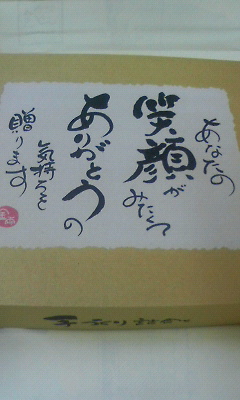 あなたの
笑顔が
みたくて
ありがとうの
気持ちを
贈ります
手づくり詰合せ